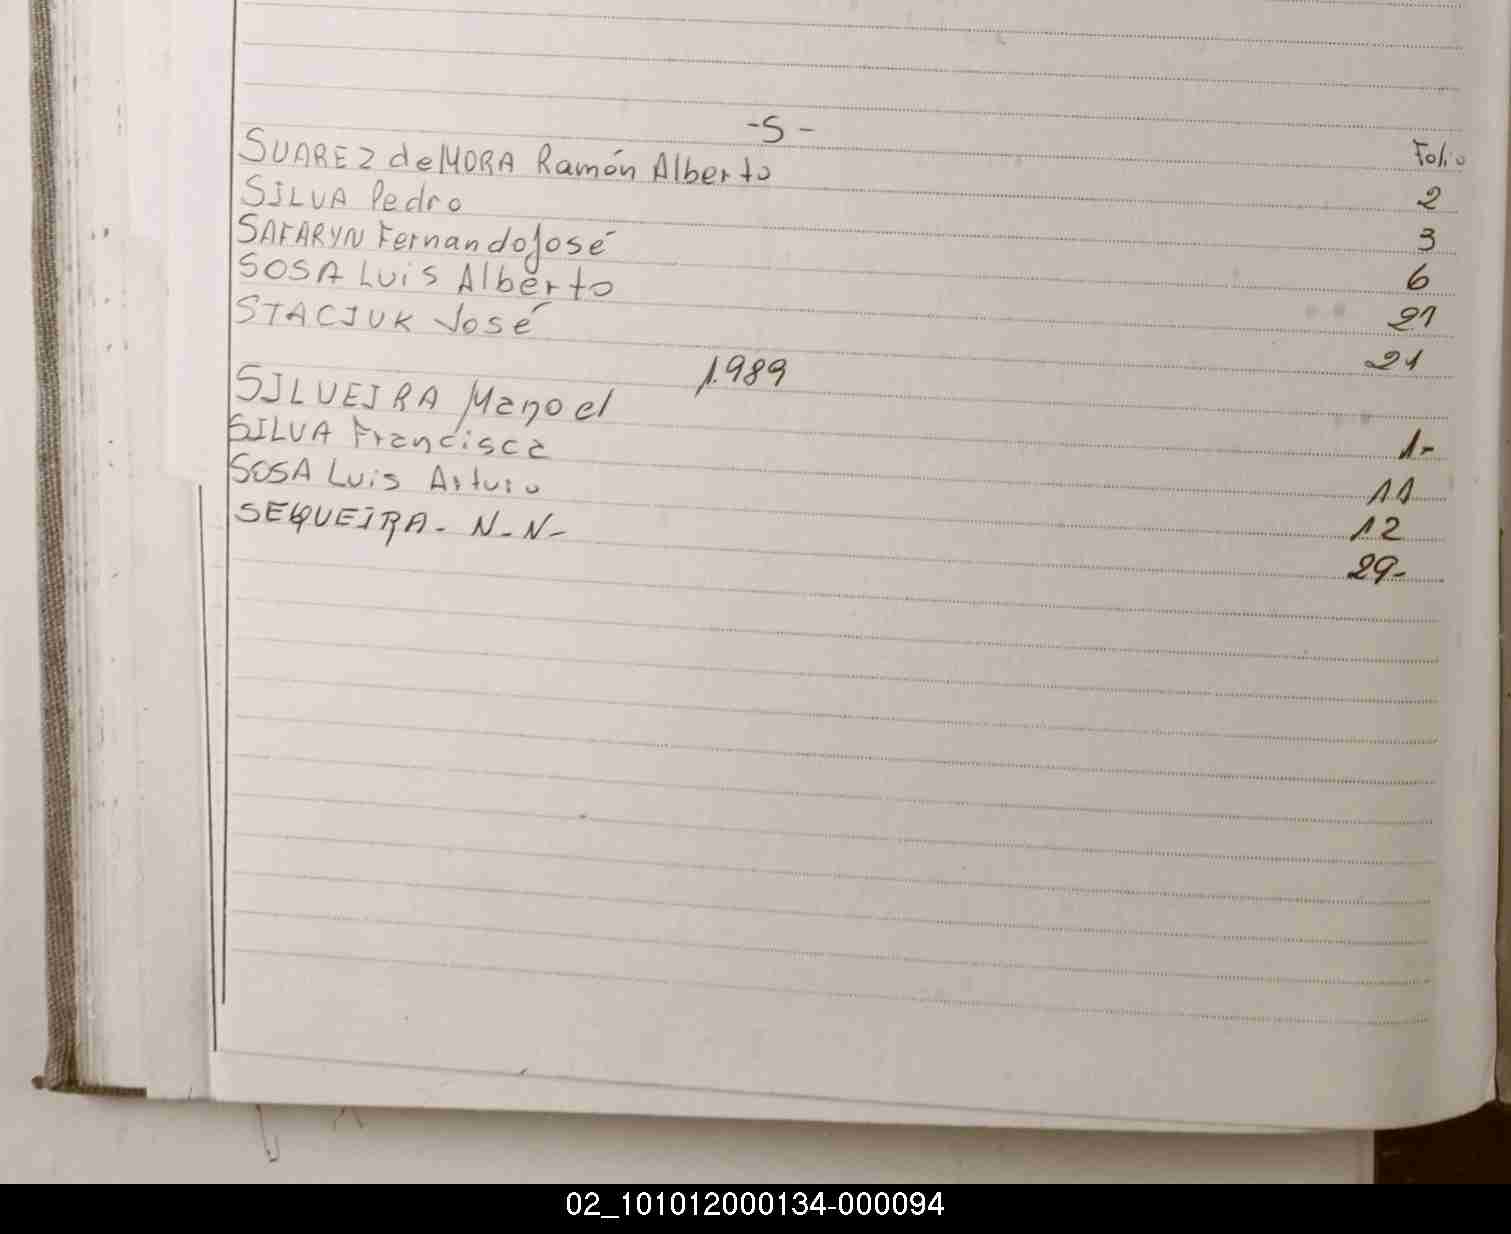 -S-
Folio
SUAREZ de MORA Ramón Alberto 2
SILVA Pedro 3
SAFARYN Fernando José 6
SOSA Luis Alberto 21
STACIUK José 21
1.989
SILVEIRA Manoel 1-
SILVA Francisca 11
SOSA Luis Arturo 12
SEQUEIRA- N-N- 29-
02_101012000134-000094